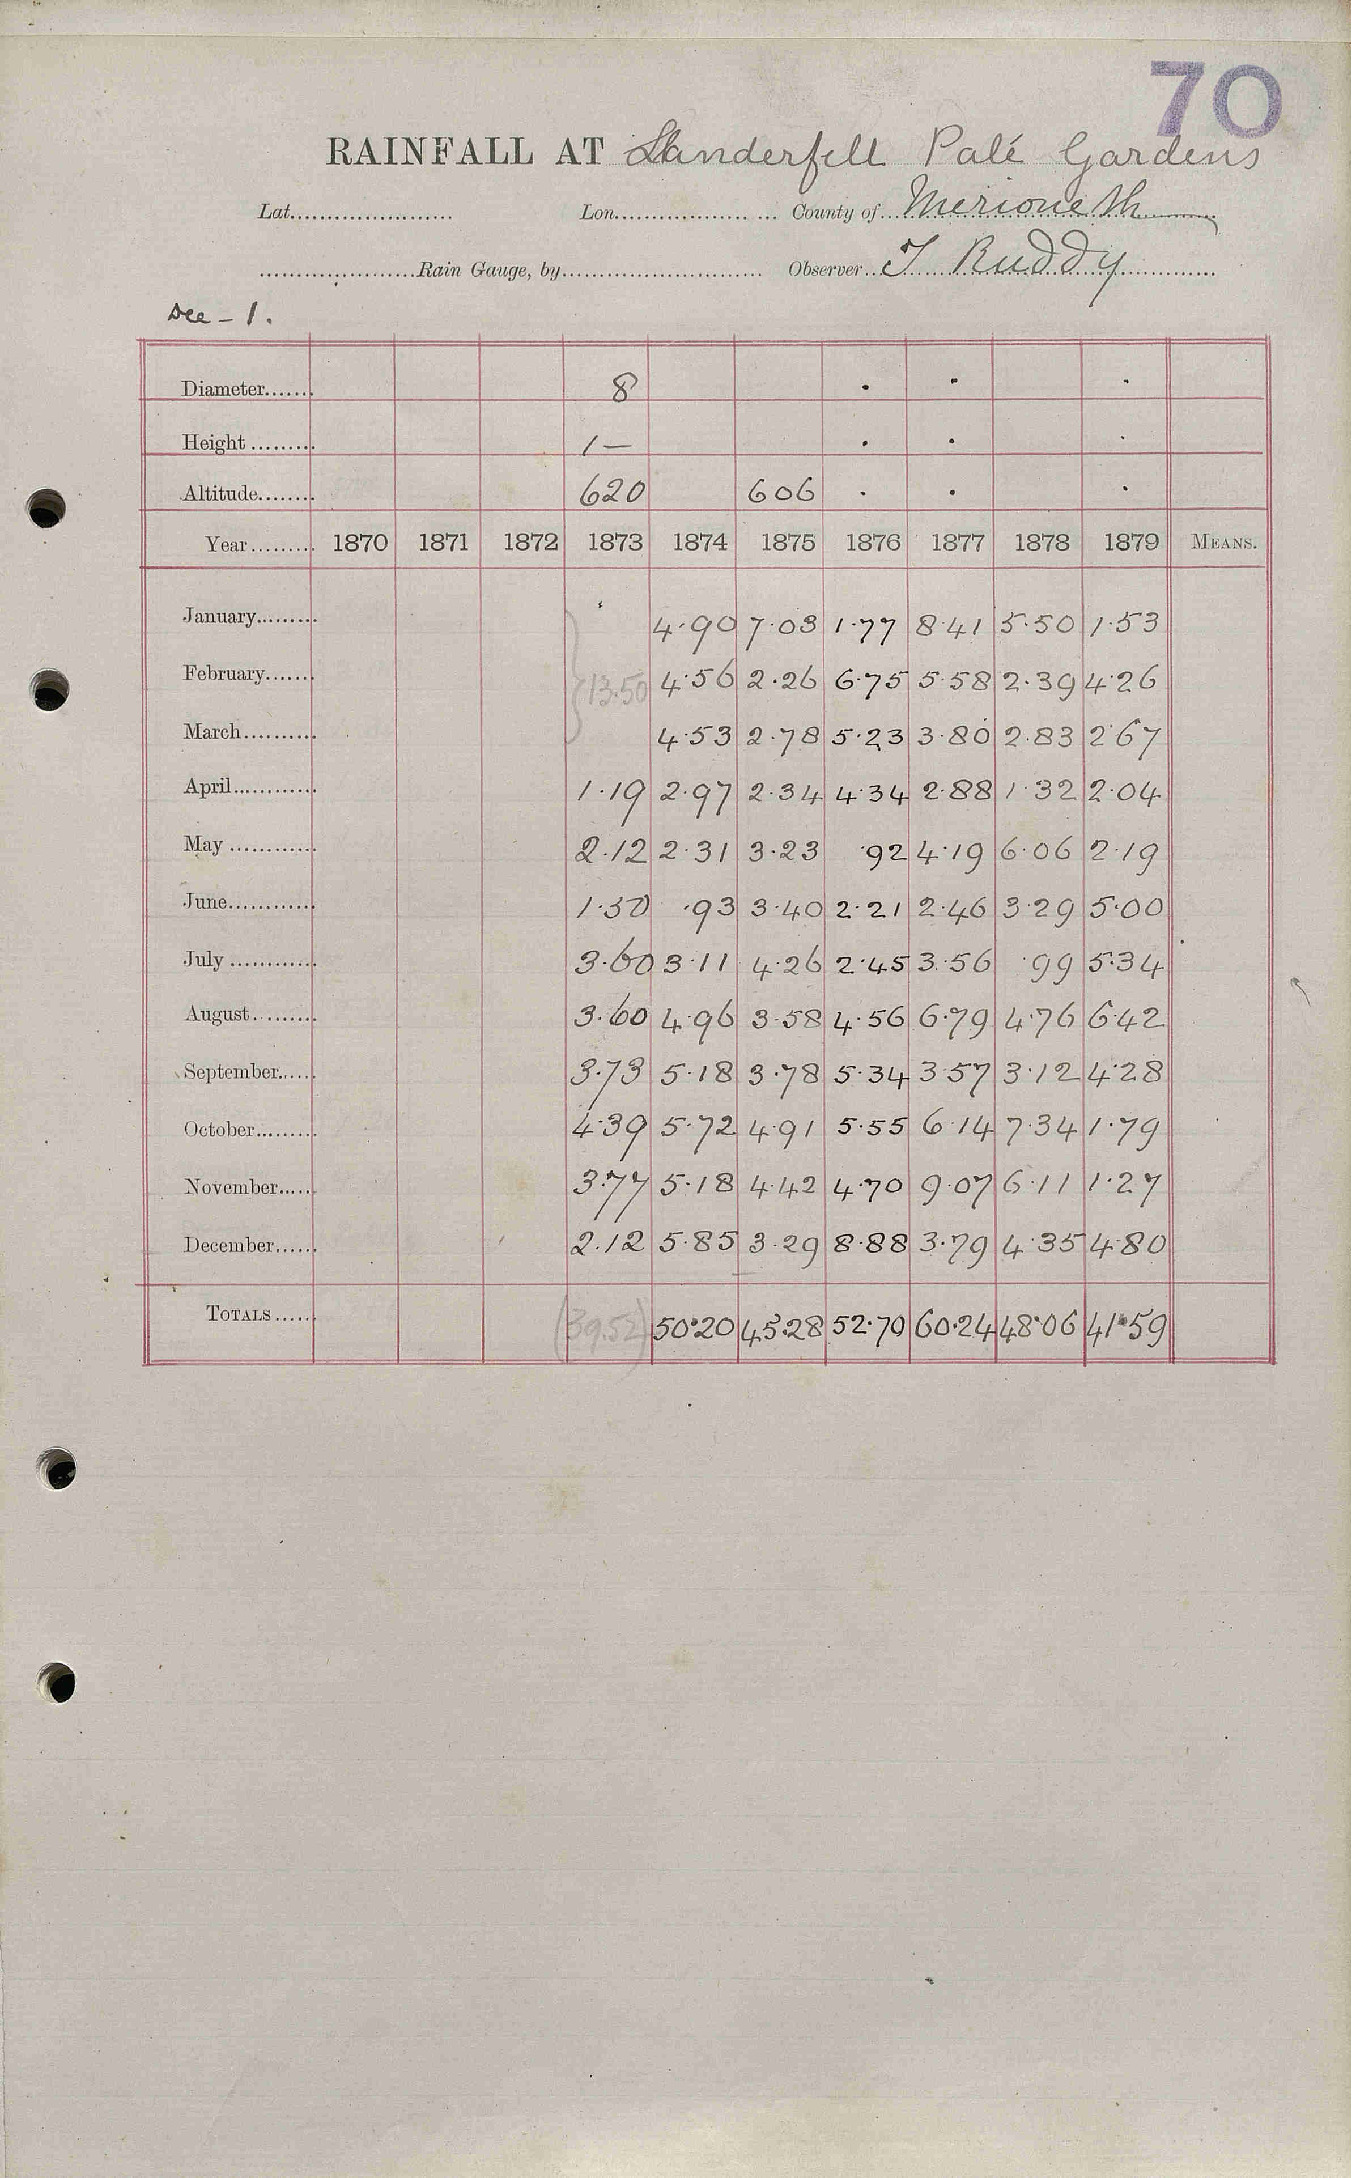 70
RAINFALL AT Llanderfell Palé Gardens
Lat...................... Lon.................. ... County of...Merioneth
.....................Rain Gauge, by........................... Observer...T Ruddy
Dec - 1.
Diameter....... 8 . . .
Height ......... 1 — . . .
Altitude........ 620 606 . . .
Year......... 1870 1871 1872 1873 1874 1875 1876 1877 1878 1879 MEANS.
January......... 4.90 7.03 1.77 8.41 5.50 1.53
February....... 13.50 4.56 2.26 6.75 5.58 2.39 4.26
March.......... 4.53 2.78 5.23 3.80 2.83 2.67
April............ 1.19 2.97 2.34 4.34 2.88 1.32 2.04
May ............ 2.12 2.31 3.23 .92 4.19 6.06 2.19
June............ 1.50 .93 3.40 2.21 2.46 3.29 5.00
July ............ 3.60 3.11 4.26 2.45 3.56 .99 5.34
August.......... 3.60 4.96 3.58 4.56 6.79 4.76 6.42
September...... 3.73 5.18 3.78 5.34 3.57 3.12 4.28
October......... 4.39 5.72 4.91 5.55 6.14 7.34 1.79
November...... 3.77 5.18 4.42 4.70 9.07 6.11 1.27
December...... 2.12 5.85 3.29 8.88 3.79 4.35 4.80
TOTALS...... (39.52) 50.20 45.28 52.70 60.24 48.06 41.59